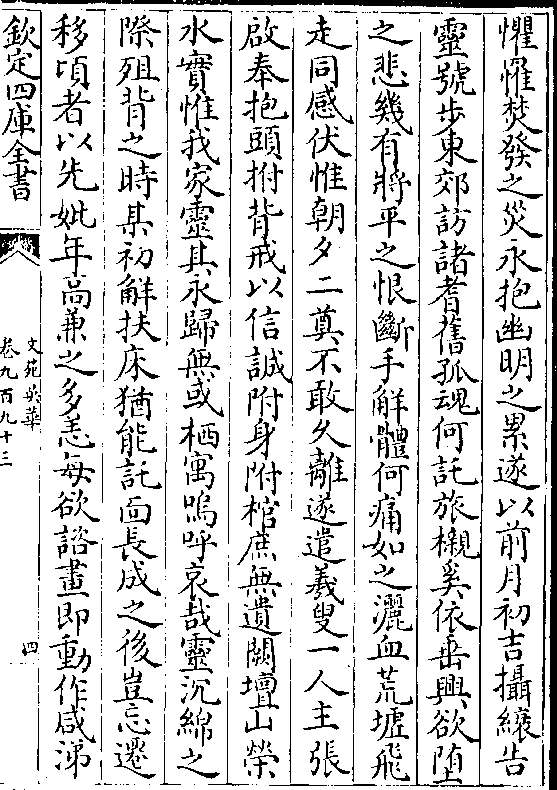 懼罹焚發之災永抱幽明之累遂以前月初吉攝縗告
靈號步東郊訪諸耆舊孤魂何託旅櫬奚依垂興欲墮
之悲幾有將平之恨斷手解體何痛如之灑血荒墟飛
走同感伏惟朝夕二奠不敢久離遂遣羲叟一人主張
啟奉抱頭拊背戒以信誠附身附棺庶無遺闕壇山榮
水實惟我家靈其永歸無或栖寓嗚呼哀哉靈沉綿之
際殂背之時某初解扶床猶能託面長成之後豈忘遷
移頃者以先妣年高兼之多恙每欲諮畫即動作咸涕
欽定四庫全書
文苑英華
卷九百九十三
四